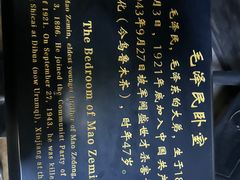 毛泽民卧室
毛泽民,毛泽东的大弟,生于18
月,1921年底加入中国共产
43年9月27日被军阀盛世才杀害
化(今乌鲁木齐),时年47岁。
The Bedroom of Mao Zemi
Mao Zemin, eldest younger brother of Mao Zedong
3, 1896. He joined the Communist Party of
of 1921. On September 27, 1943, he was kille
Shicai at Dihua (now Urumqi), Xinjiang at th